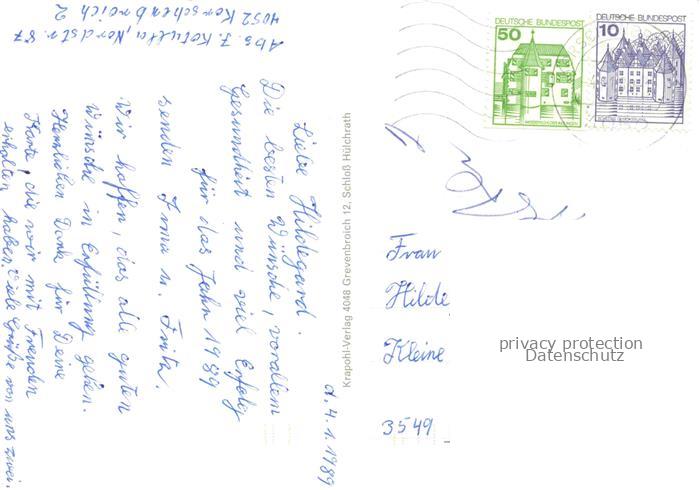 Abs. J. Kotulla, Nordstr. 87
4052 Korschenbroich 2
d. 4.1.1989
Liebe Hildegard.
Die besten Wünsche, vorallem
Gesundheit und viel Erfolg
für das Jahr 1989
senden Irma u. Fritz.
Wir hoffen, das alle guten
Wünsche in Erfüllung gehen.
Herzlichen Dank für Deine
Karte, die wir mit Freuden
erhalten haben. Viele Grüße von uns zwei.
Krapohl-Verlag 4048 Grevenbroich 12, Schloß Hülchrath
DEUTSCHE BUNDESPOST
50
DEUTSCHE BUNDESPOST
10
Frau
Hilde
Kleine
3549
privacy protection
Datenschutz